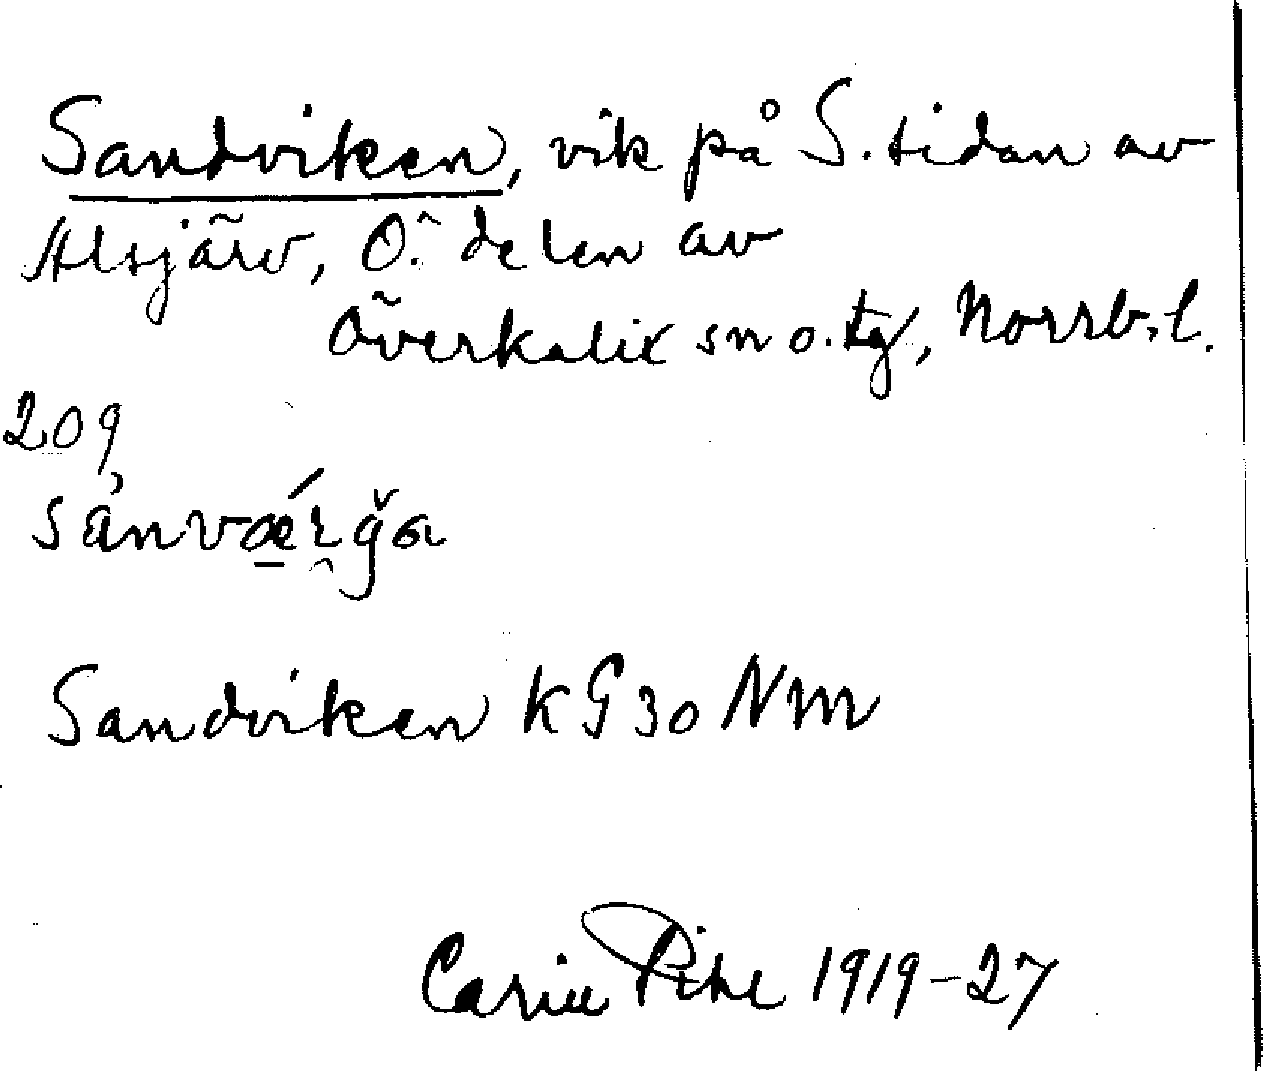 Sandviken, vik på S. sidan av
Alsjärv, Ö. delen av
Överkalix sn o. tg, Norrb. l.
209
sånvǽrğa
Sandviken KG 30 NM
Carin Pihl 1919-27